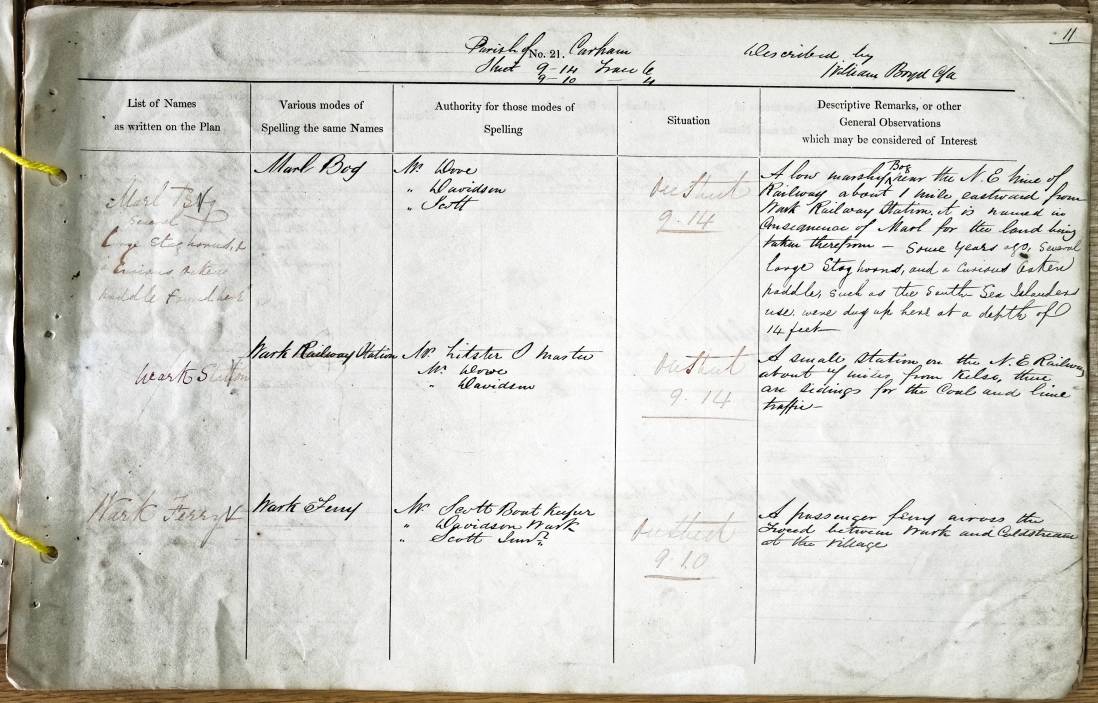 11
Parish of No. 21. Carham
Described by
Sheet 9-14 Trace 6
William Boyd C/a
9-10 — 4
List of Names
as written on the Plan
Various modes of
Spelling the same Names
Authority for those modes of
Spelling
Situation
Descriptive Remarks, or other
General Observations
which may be considered of Interest
Marl Bog
Several
large stag horns, &
a Curious oaken
paddle found here
Marl Bog
Mr. Dove
" Davidson
" Scott
On Sheet
9.14
A low marshy Bog near the N.E line of
Railway about 1 mile eastward from
Wark Railway Station, it is named in
Consequence of Marl for the land being
taken therefrom — Some Years ago, several
large Stag horns, and a Curious Oaken
paddle, such as the South Sea Islanders
use, were dug up here at a depth of
14 feet —
Wark Station
Wark Railway Station
Mr. Litster O Master
Mr. Dove
" Davidson
On Sheet
9.14
A small Station on the N.E Railway
about miles from Kelso, there
are sidings for the Coal and lime
traffic —
Wark Ferry
Wark Ferry
Mr. Scott Boat Keeper
" Davidson Wark
" Scott Junr.
On Sheet
9.10
A passenger ferry across the
Tweed between Wark and Coldstream
at the Village